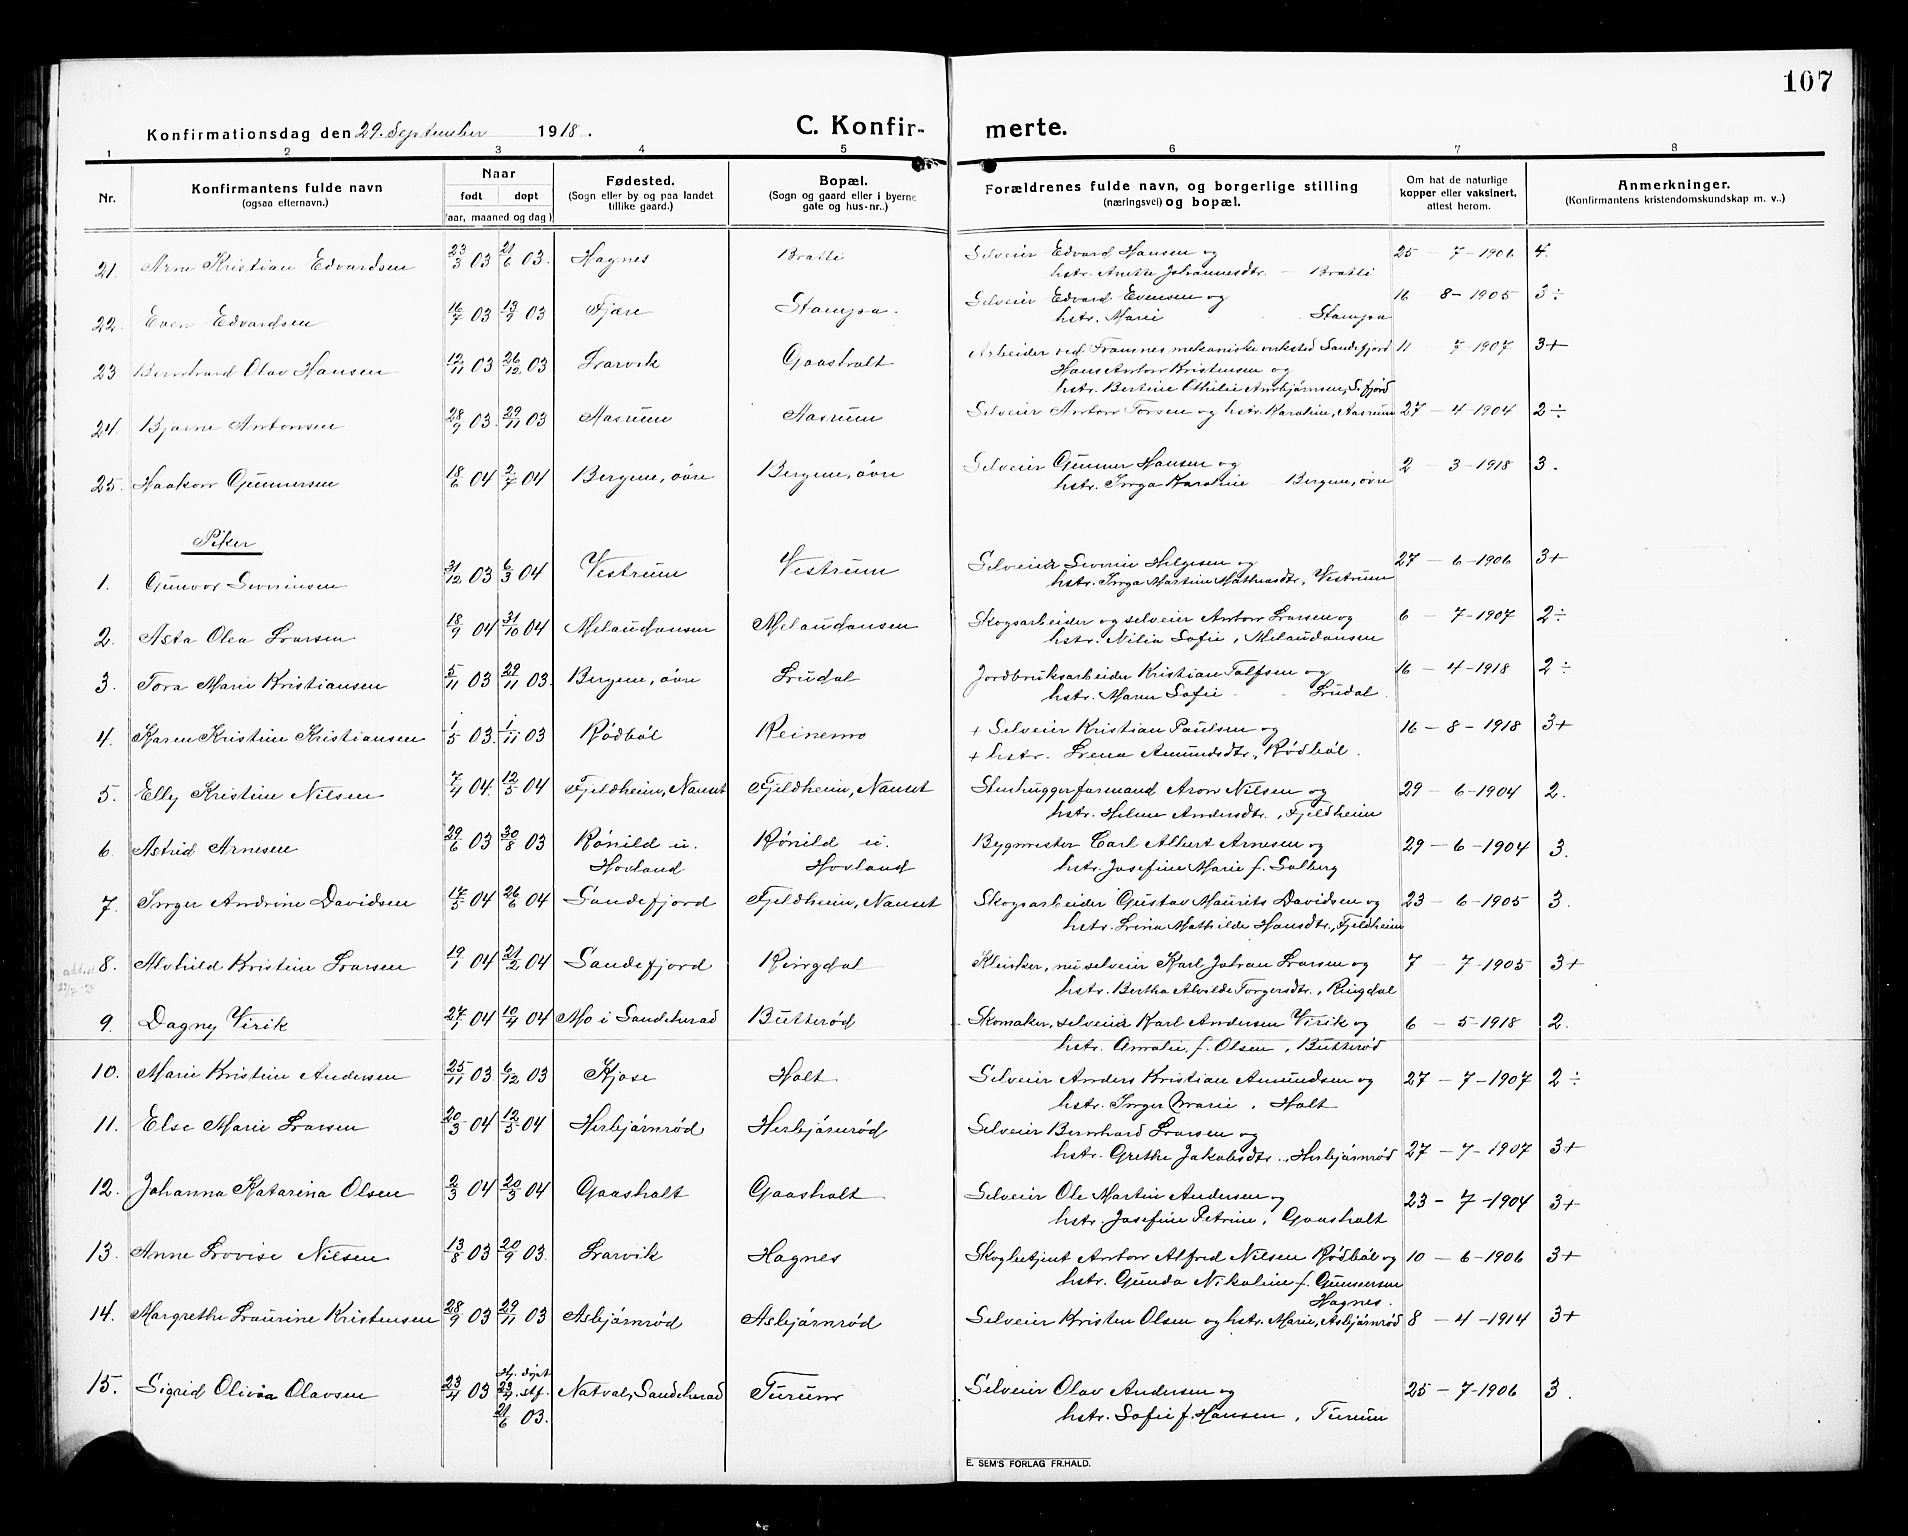 107
Konfirmationsdag den 29. September 1918.
C. Konfir- merte.
1 2 3 4 5 6 7 8
Nr.
Konfirmantens fulde navn
(ogsaa efternavn.)
Naar
født døpt
(aar, maaned og dag)
Fødested.
(Sogn eller by og paa landet
tillike gaard.)
Bopæl.
(Sogn og gaard eller i byerne
gate og hus-nr.)
Forældrenes fulde navn, og borgerlige stilling
(næringsvei) og bopæl.
Om hat de naturlige
kopper eller vaksinert,
attest herom.
Anmerkninger.
(Konfirmantens kristendomskundskap m. v..)
21. Arne Kristian Edvardsen 23/3 03 21/6 03. Hagnes Bratli Selveier Edvard Hansen og 25 - 7 - 1906 4.
hstr. Anette Johannesdtr. - Bratli
22. Even Edvardsen 16/7 03 13/9 03 Fjære Stampa. Selveier Edvard Evensen og 16 8 - 1905 3÷
hstr. Marie Stampa
23 Bernhard Olav Hansen 12/11 03 26/12 03 Larvik Gaasholt Arbeider ved Framnes mekaniske verksted Sandefjord 11 7 - 1907 3+
Hans Anton Kristensen og
hstr. Bertine Othilie Ambjørnsen, S.fjord
24. Bjarne Antonsen 28/9 03. 29/11 03 Aasrum Aasrum Selveier Anton Torsen og hstr. Karoline, Aasrum 27 - 4 - 1904 2÷
25. Haakon Gunnersen 18/6 04 2/7 04 Bergene, övre Bergene, övre Selveier Gunner Hansen og 2 - 3 - 1918 3.
hstr. Inga Karoline - Bergene, övre
Piker
1. Gunvor Severinsen 31/12 03 6/3 04 Vestrum Vestrum Selveier Severin Helgesen og 27 - 6 - 1906 3+
hstr. Inga Martine Mathiasdtr, Vestrum
2. Asta Olea Larsen 18/9 04 31/10 04 Melaudansen Melaudansen Skogsarbeider og selveier Anton Larsen og 6 - 7 - 1907 2÷
hstr. Nilia Sofie, Melaudansen
3. Tora Marie Kristiansen 5/11 03 29/11 03. Bergene, övre Lrudal Jordbruksarbeider Kristian Tolfsen og 16 - 4 - 1918 2÷
hstr. Maren Sofie - - Lrudal.
4. Karen Kristine Kristiansen 1/5 03. 1/11 03 Rödböl Reinemo + Selveier Kristian Paulsen og 16 - 8 - 1918 3+
+ hstr. Lrena Amundsdtr, Rödböl.
5. Elly Kristine Nilsen 7/4 04. 12/5 04 Fjeldheim, Nanset Fjeldheim, Nanset Stenhuggerformand Aron Nilsen og 29 - 6 - 1904 2.
hstr. Helene Andersdtr., Fjeldheim
6. Astrid Arnesen 29/6 03 30/8 03 Rönild u. Rönild u. Bygmester Carl Albert Arnesen og 29 - 6 - 1904 3.
Hovland Hovland hstr. Josefine Marie f. Solberg
7. Inger Andrine Davidsen 17/5 04 26/6 04 Sandefjord Fjeldheim, Nanset Skogsarbeider Gustav Maurits Davidsen og 23 - 6 - 1905 3.
hstr. Lrina Mathilde Hansdtr., Fjeldheim
8. Alvhild Kristine Larsen 19/1 04 21/2 04 Sandefjord Ringdal Kleinsker, nu selveier Karl Johan Larsen og 7 - 7 - 1905 3+
hstr. Bertha Alvilde Torgersdtr., Ringdal
9. Dagny Virik 27/1 04 10/4 04 Mo i Sandeherad Butteröd Skomaker, selveier Karl Andersen Virik og 6 - 5 - 1918 2.
hstr. Amalie, f. Olsen, Butteröd
10. Marie Kristine Andersen 25/11 03 6/12 03 Kjose Holt Selveier Anders Kristian Amundsen og 27 - 7 - 1907 2÷
hstr. Inger Marie. Holt
11. Else Marie Larsen 20/3 04 12/5 04 Herbjörnröd Herbjörnröd Selveier Bernhard Larsen og
hstr. Grethe Jakobsdtr., Herbjörnröd 27 - 7 - 1907 3+
12. Johanna Katarina Olsen 2/3 04 20/3 04 Gaasholt Gaasholt Selveier Ole Martin Andersen og 23 - 7 - 1904 3+
hstr. Josefine Petrine, Gaasholt
13. Anne Lovise Nilsen 13/8 03 20/9 03. Larvik Hagnes Skogbetjent Anton Alfred Nilsen Rödböl og 10 - 6 - 1906 3+
hstr. Gunda Nikoline f. Gunnersen
Hagnes.
14. Margrethe Laurine Kristensen 28/9 03 29/11 03 Asbjörnröd Asbjörnröd Selveier Kristen Olsen og hstr. Marie, Asbjörnröd 8 - 4 - 1914 3+
15. Sigrid Olivia Olavsen 23/4 03 Hj. döpt 23/4. stf. 21/6 03. Natval, Sandeherad Furum Selveier Olav Andersen og 25 - 7 - 1906 3.
hstr. Sofie f. Hansen, Furum
E. SEM'S FORLAG FR.HALD.